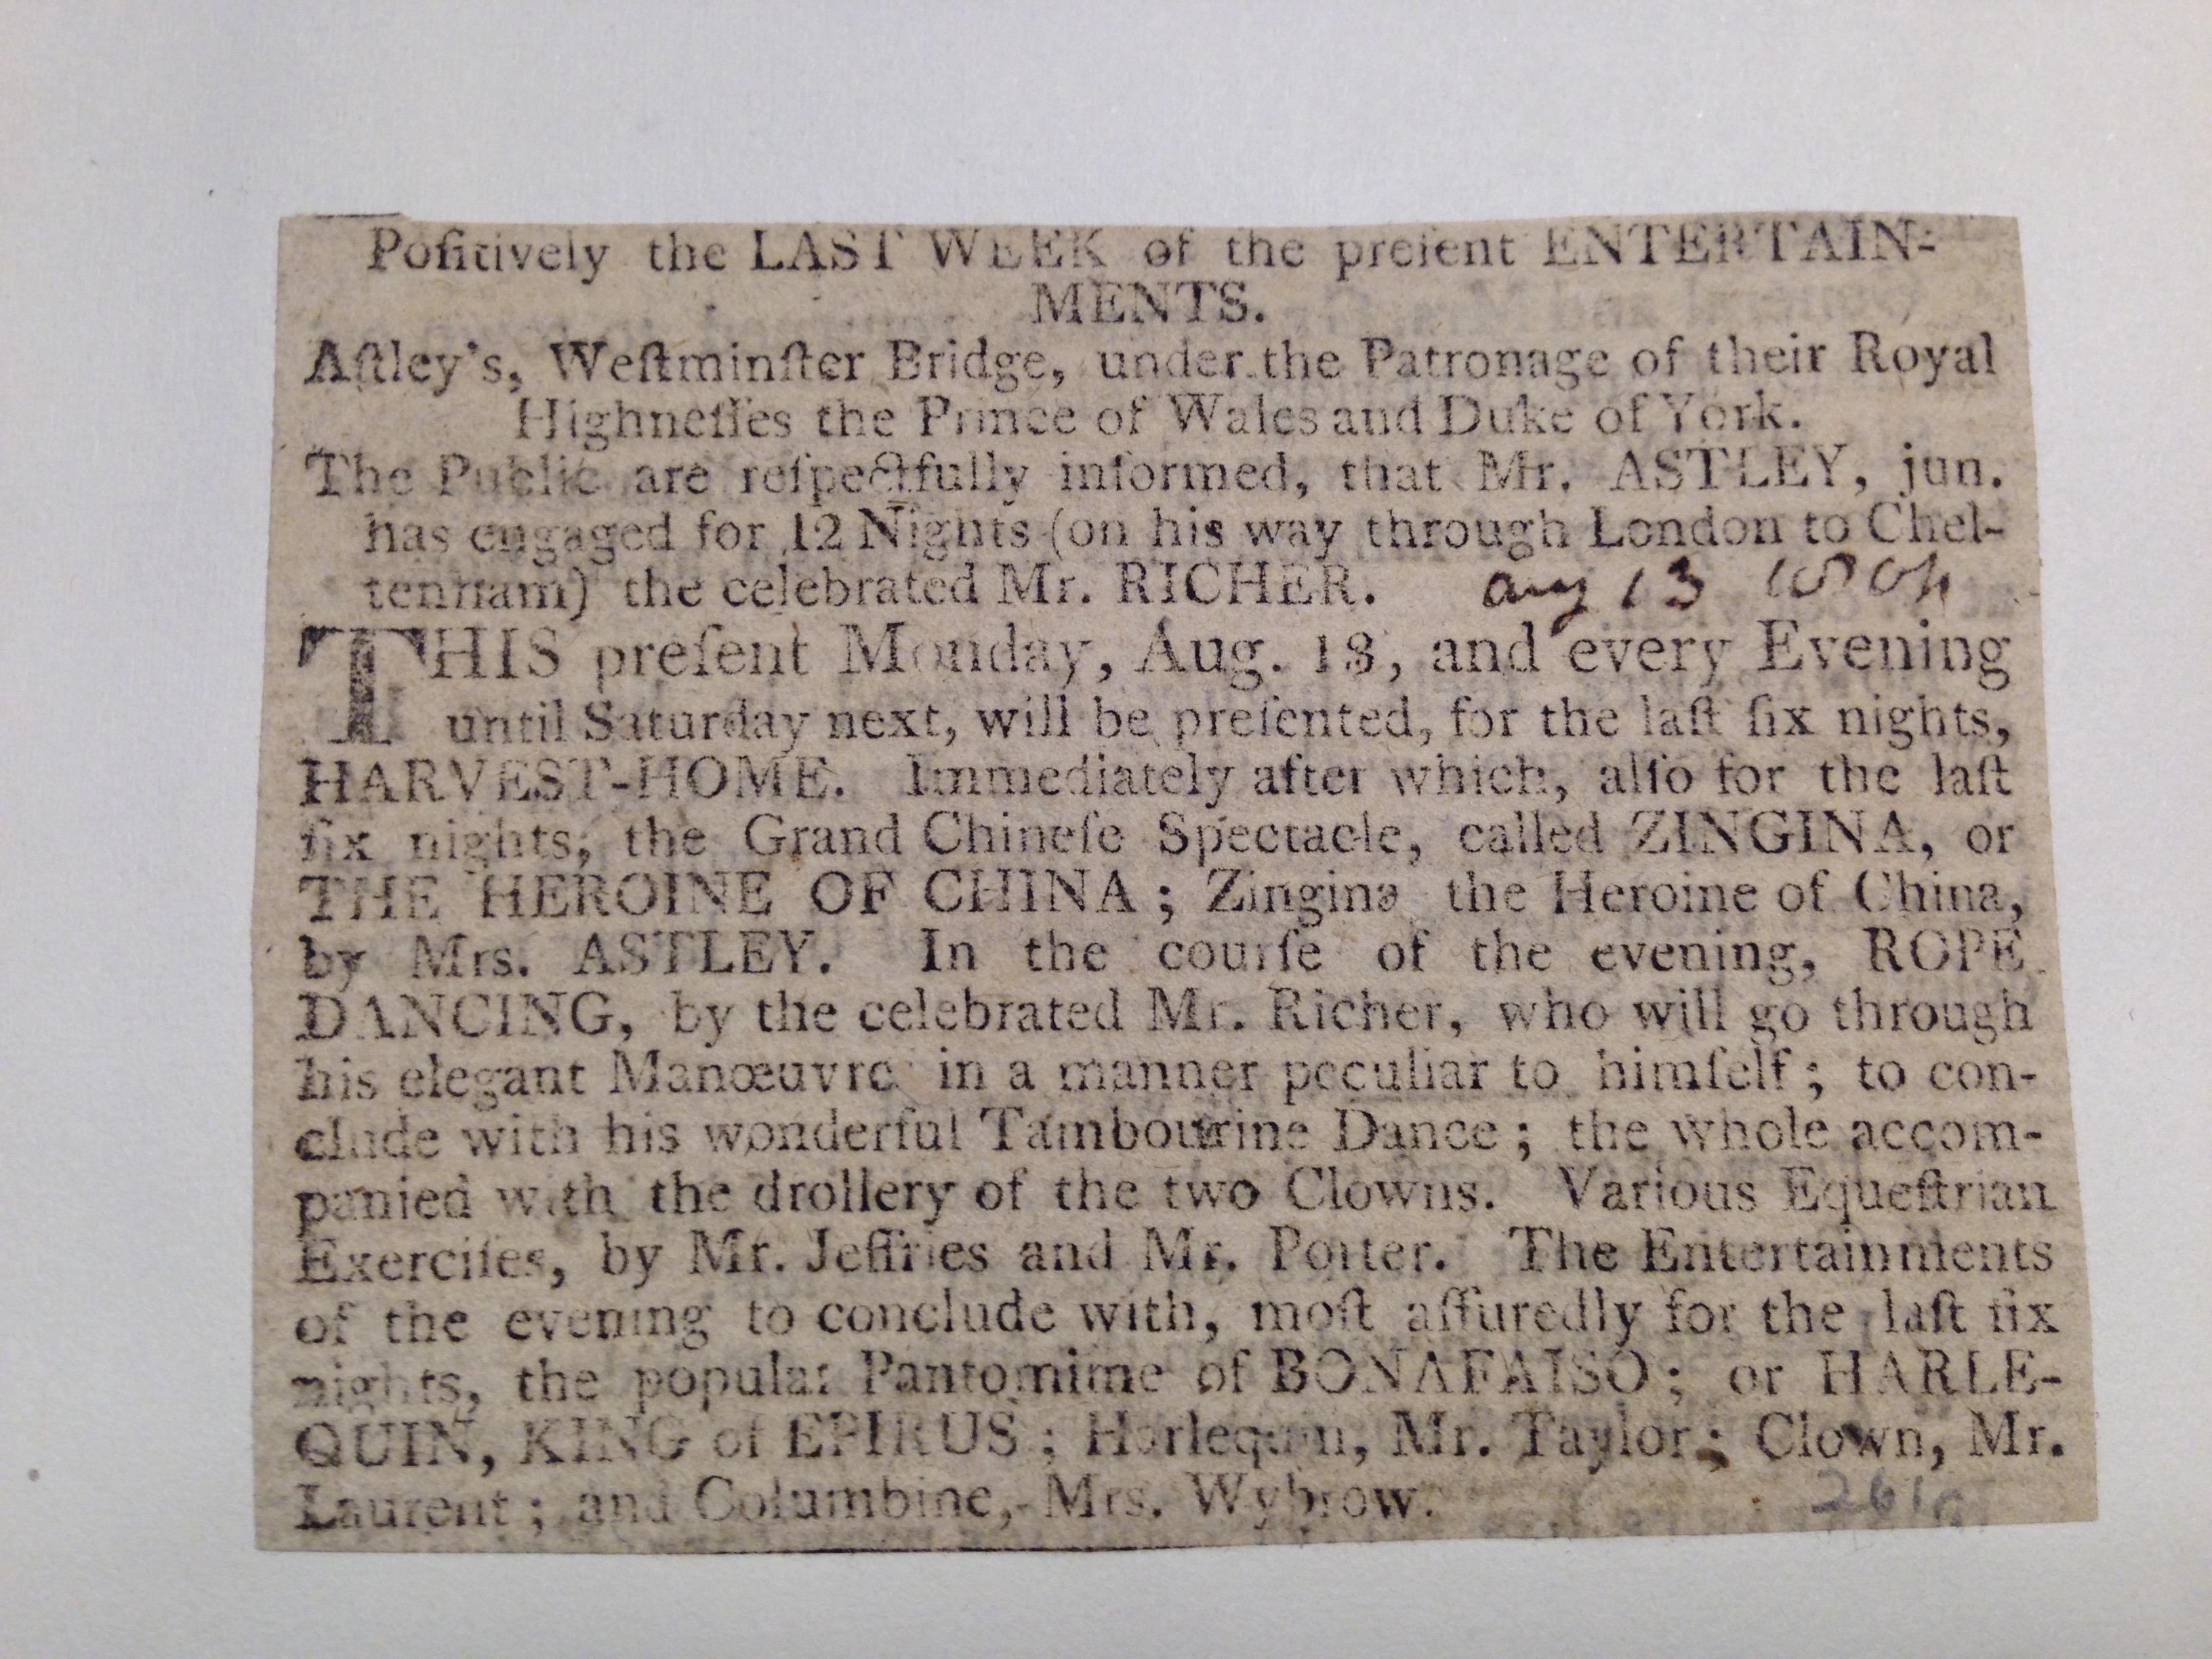 Poſitively the LAST WEEK of the preſent ENTERTAIN-
MENTS.
Aſtley's, Weſtminſter Bridge, under the Patronage of their Royal
Highneſſes the Prince of Wales and Duke of York.
The Public are reſpectfully informed, that Mr. ASTLEY, jun.
has engaged for 12 Nights (on his way through London to Chel-
tenham) the celebrated Mr. RICHER.
aug 13 1804
THIS preſent Monday, Aug. 13, and every Evening
until Saturday next, will be preſented, for the laſt ſix nights,
HARVEST-HOME. Immediately after which, alſo for the laſt
ſix nights, the Grand Chineſe Spectacle, called ZINGINA, or
THE HEROINE OF CHINA; Zingina the Heroine of China,
by Mrs. ASTLEY. In the courſe of the evening, ROPE
DANCING, by the celebrated Mr. Richer, who will go through
his elegant Manœuvre in a manner peculiar to himſelf; to con-
clude with his wonderful Tambourine Dance; the whole accom-
panied with the drollery of the two Clowns. Various Equeſtrian
Exerciſes, by Mr. Jeffries and Mr. Porter. The Entertainments
of the evening to conclude with, moſt aſſuredly for the laſt ſix
nights, the popular Pantomime of BONAFAISO; or HARLE-
QUIN, KING of EPIRUS; Harlequin, Mr. Taylor; Clown, Mr.
Laurent; and Columbine, Mrs. Wybrow.